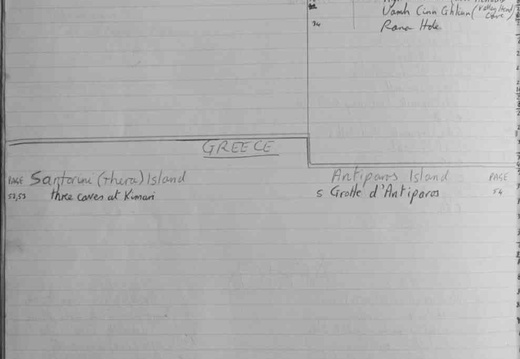 Uamh Cinn Ghlinn (Valley Head Cave)
34 Rana Hole
GREECE
PAGE Santorini (Thera) Island
52,53 three caves at Kimari
Antiparos Island PAGE
5 Grotte d'Antiparos 54